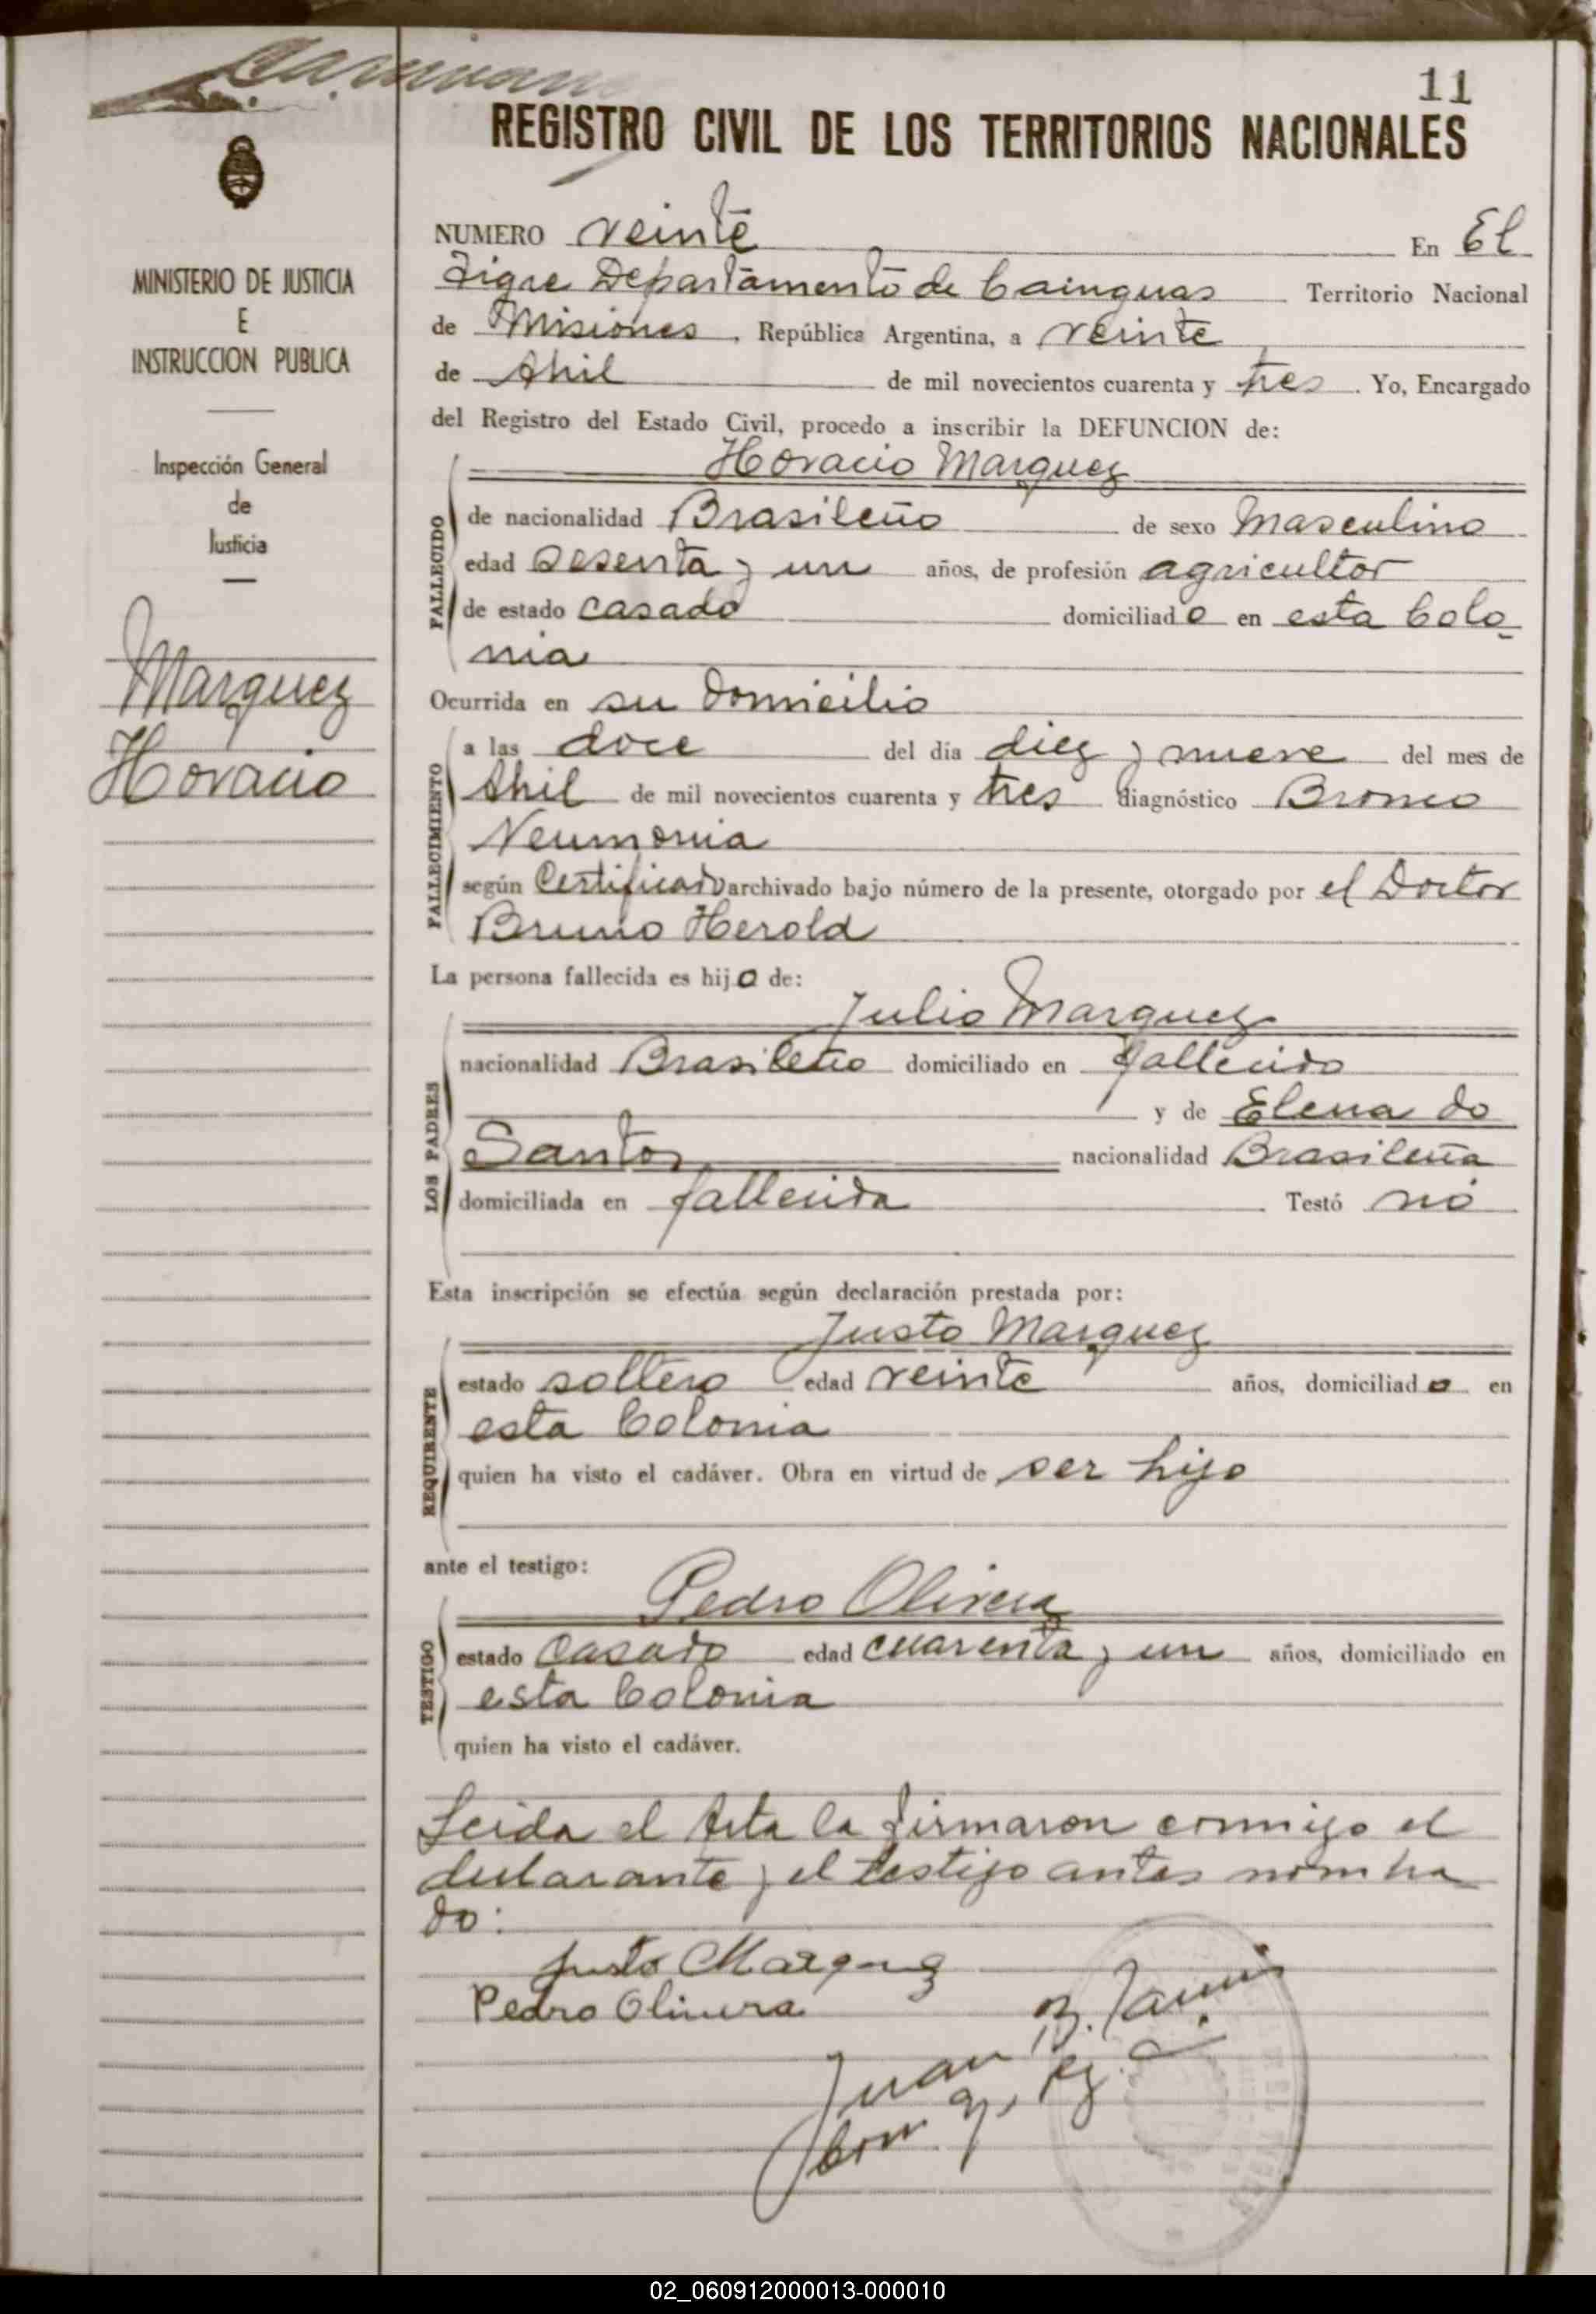 11
REGISTRO CIVIL DE LOS TERRITORIOS NACIONALES
MINISTERIO DE JUSTICIA
E
INSTRUCCION PUBLICA
Inspección General
de
Justicia
Marquez
Horacio
NUMERO veinte En El
Tigre Departamento de Cainguas Territorio Nacional
de Misiones, República Argentina, a veinte
de Abril de mil novecientos cuarenta y tres. Yo, Encargado
del Registro del Estado Civil, procedo a inscribir la DEFUNCION de:
Horacio Marquez
FALLECIDO
de nacionalidad Brasileño de sexo Masculino
edad sesenta y un años, de profesión agricultor
de estado casado domiciliado en esta Colo
nia
Ocurrida en su domicilio
FALLECIMIENTO
a las doce del día diez y nueve del mes de
Abril de mil novecientos cuarenta y tres diagnóstico Bronco
Neumonia
según Certificado archivado bajo número de la presente, otorgado por el Doctor
Bruno Herold
La persona fallecida es hijo de:
Julio Marquez
LOS PADRES
nacionalidad Brasileño domiciliado en fallecido
y de Elena do
Santos nacionalidad Brasileña
domiciliada en fallecida Testó nó
Esta inscripción se efectúa según declaración prestada por:
Justo Marquez
REQUIRENTE
estado soltero edad veinte años, domiciliado en
esta Colonia
quien ha visto el cadáver. Obra en virtud de ser hijo
ante el testigo:
Pedro Olivera
TESTIGO
estado casado edad cuarenta y un años, domiciliado en
esta Colonia
quien ha visto el cadáver.
Leida el Acta la firmaron conmigo el
declarante y el testigo antes nombra
do:
Justo Marquez
Pedro Olivera
Juan B.
02_060912000013-000010